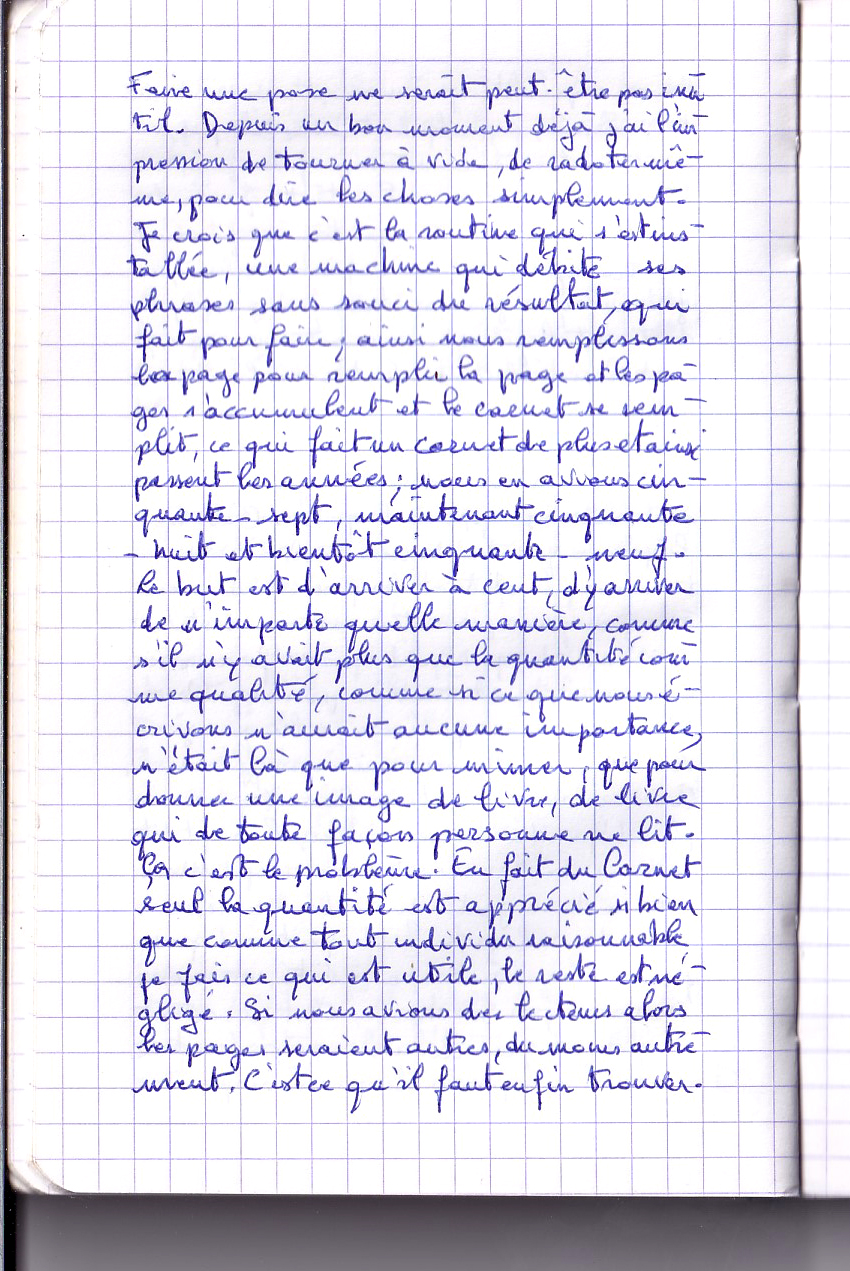 Faire une pose ne serait peut-être pas inu
til. Depuis un bon moment déjà j'ai l'im
pression de tourner à vide, de radoter mê-
me, pour dire les choses simplement.
Je crois que c'est la routine qui s'est ins-
tallée, une machine qui débite ses
phrases sans souci du résultat, qui
fait pour faire; ainsi nous remplissons
la page pour remplir la page et les pa-
ges s'accumulent et le carnet se rem-
plit, ce qui fait un carnet de plus et ainsi
passent les années; nous en avons cin-
quante-sept, maintenant cinquante
-huit et bientôt cinquante-neuf.
Le but est d'arriver à cent, d'y arriver
de n'importe quelle manière, comme
s'il n'y avait plus que la quantité com
me qualité, comme si ce que nous é-
crivons n'aurait aucune importance,
n'était là que pour mimer, que pour
donner une image de livre, de livre
qui de toute façon personne ne lit.
Ça c'est le problème. En fait du Carnet
seul la quantité est apprécié si bien
que comme tout individu raisonnable
je fais ce qui est utile, le reste est né-
gligé. Si nous avions des lecteurs alors
les pages seraient autres, du moins autre
ment. C'est ce qu'il faut enfin trouver.